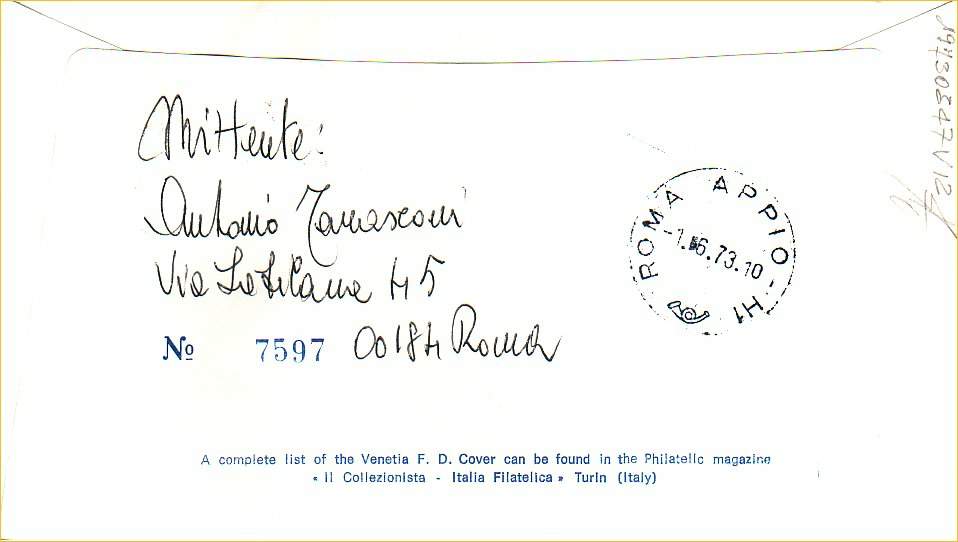 Mittente:
Antonio Tamasconi
Via Latilana 45
00184 Roma
№ 7597
ROMA APPIO - H1
-1.6.73.10
A complete list of the Venetia F. D. Cover can be found in the Philatelic magazine
« Il Collezionista - Italia Filatelica » Turin (Italy)